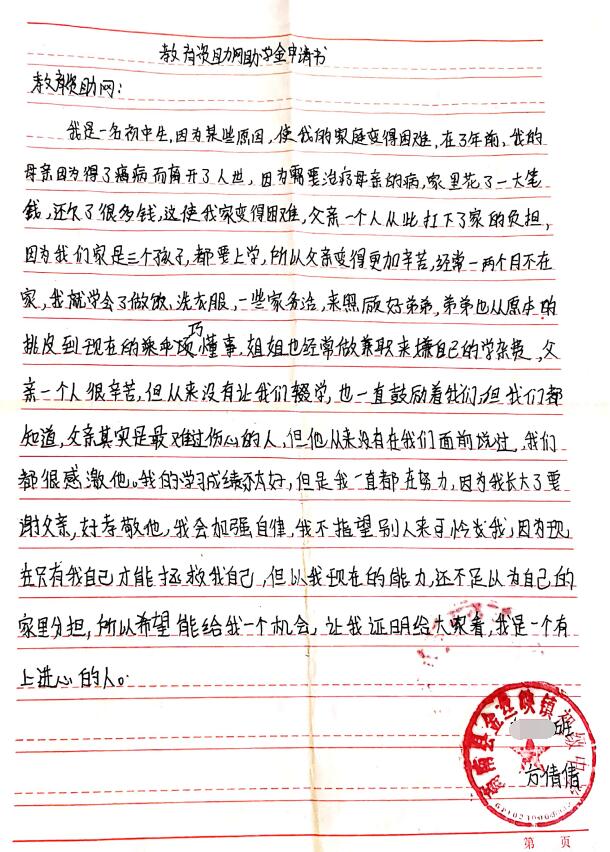 教育资助网助学金申请书
教育资助网：
我是一名初中生，因为某些原因，使我的家庭变得困难，在了年前，我的
母亲因为得了癌病而离开了人世，因为需要治疗母亲的病，家里花了一大笔
钱，还欠了很多钱，这使我家变得困难，父亲一个人从此扛下了家的负担，
因为我们家是三个孩子，都要上学，所以父亲变得更加辛苦，经常一两个月不在
家，我就学会了做饭，洗衣服，一些家务活，来照顾好弟弟，弟弟也从原本的
挑皮到现在的乖巧懂事，姐姐也经常做兼职来赚自己的学杂费，父
亲一个人很辛苦，但从来没有让我们辍学，也一直鼓励着我们，但我们都
知道，父亲其实是最难过伤心的人，但他从来没有在我们面前说过，我们
都很感激他。我的学习成绩不太好，但是我一直都在努力，因为我长大了要
谢父亲，好孝敬他，我会加强自律，我不指望别人来可怜我，因为现
在只有我自己才能拯救我自己，但以我现在的能力，还不足以为自己的
家里分担，所以希望能给我一个机会，让我证明给大家看，我是一个有
上进心的人。
班
方倩倩
第 页